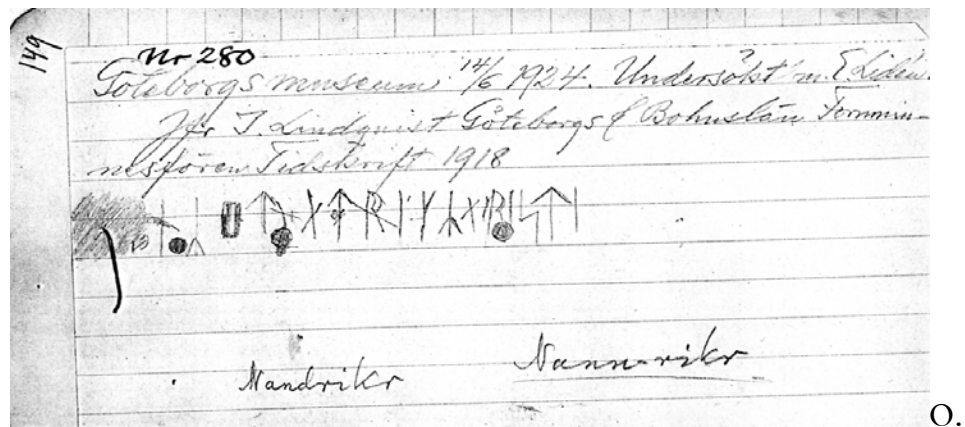 149
Nr 280
Göteborgs museum 14/6 1924. Undersökt m. E Lidén.
Jfr I. Lindquist Göteborgs & Bohuslän Fornmin-
nesfören Tidskrift 1918
Nandrikr Nannrikr
O.